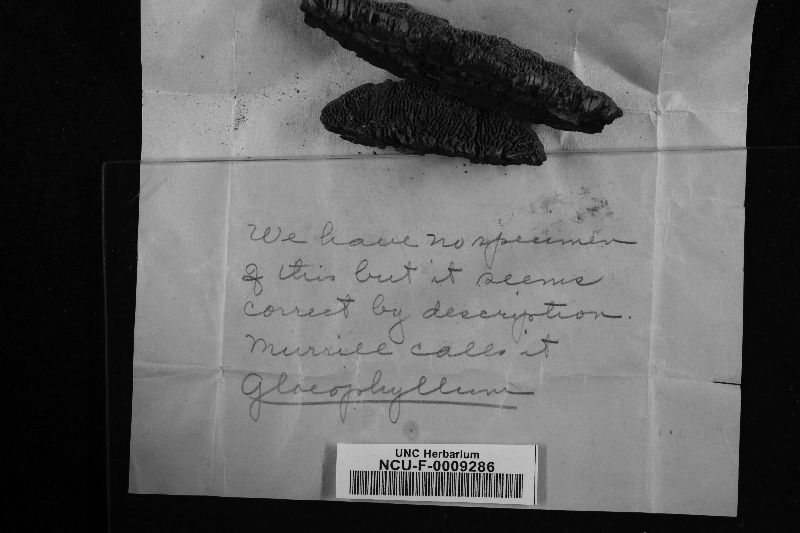 We have no specimen
of this but it seems
correct by description.
Murrill calls it
Gloeophyllum
UNC Herbarium
NCU-F-0009286